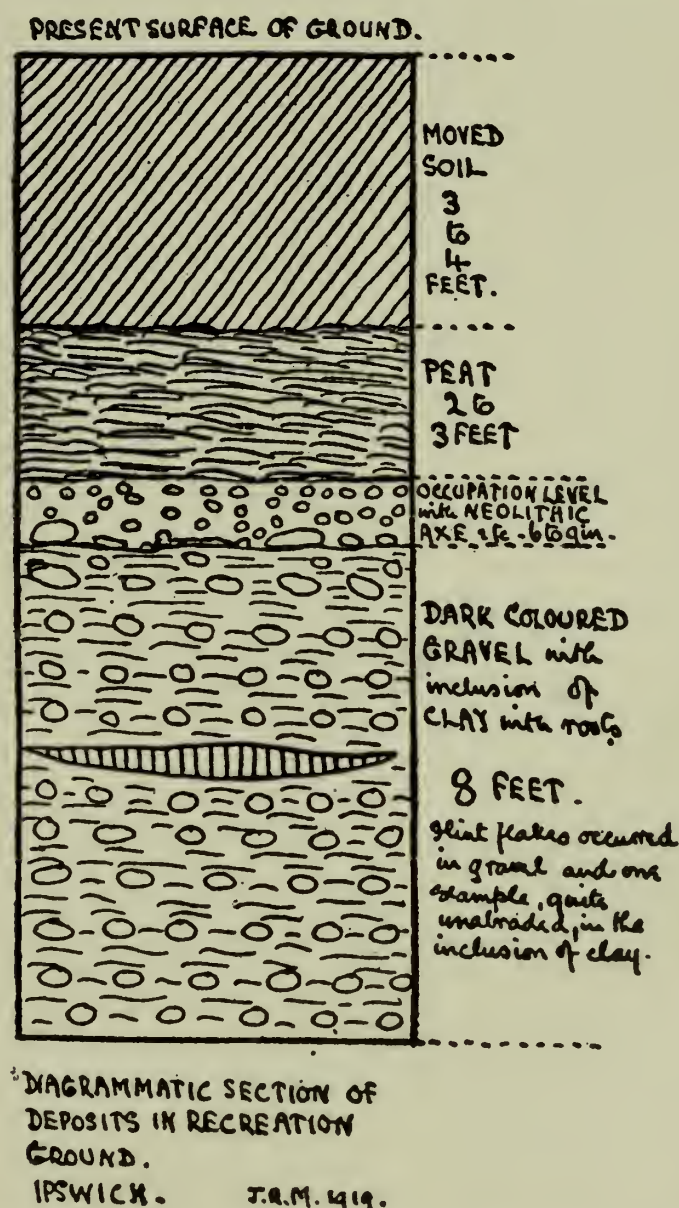 PRESENT SURFACE OF GROUND.
MOVED
SOIL
3
to
4
FEET.
PEAT
2 to
3 FEET
OCCUPATION LEVEL
with NEOLITHIC
AXE etc - 6 to 9 in.
DARK COLOURED
GRAVEL with
inclusion of
CLAY with roots
8 FEET.
Flint flakes occurred
in gravel and one
example, quite
unabraded, in the
inclusion of clay.
DIAGRAMMATIC SECTION OF
DEPOSITS IN RECREATION
GROUND.
IPSWICH. J.R.M. 1919.